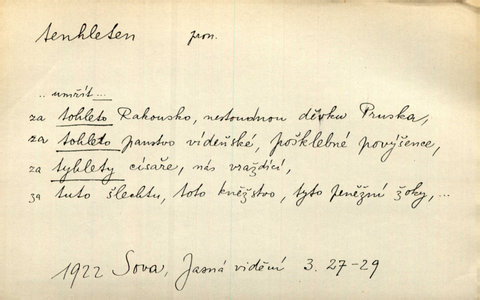 tenhleten pron.
.. umřít ...
za tohleto Rakousko, nestoudnou děvku Pruska,
za tohleto panstvo vídeňské, pošklebné povýšence,
za tyhlety císaře, nás vraždící,
za tuto šlechtu, toto kněžstvo, tyto peněžní žoky, ...
1922 Sova, Jasná vidění 3. 27-29